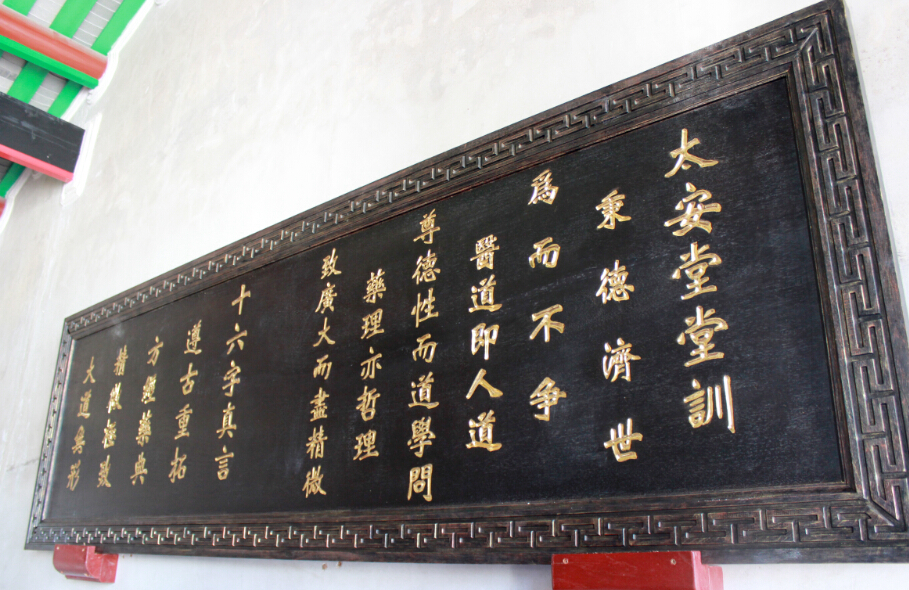 太安堂堂訓
秉德濟世
爲而不爭
醫道即人道
尊德性而道學問
藥理亦哲理
致廣大而盡精微
十六字真言
遵古重拓
方經藥典
精微極致
大道無形